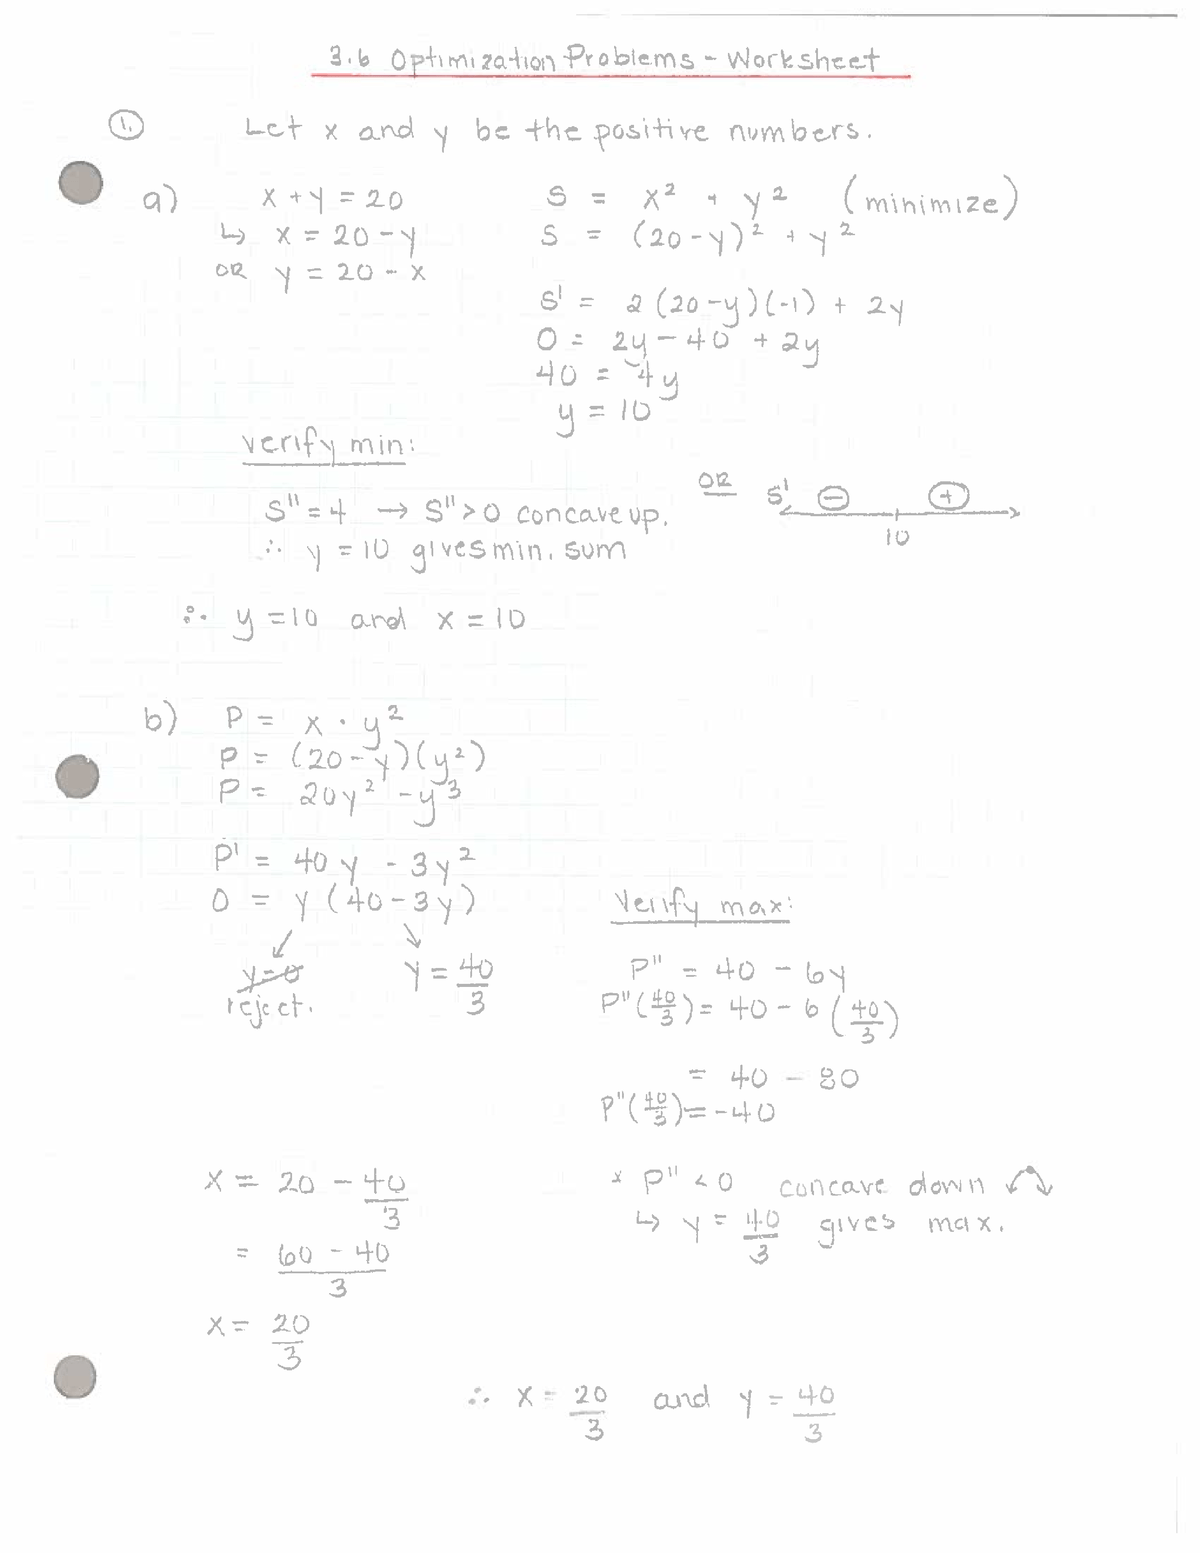 3.6 Optimization Problems - Worksheet
1. Let x and y be the positive numbers.
a) x + y = 20
↳ x = 20 - y
OR y = 20 - x
S = x² + y² (minimize)
S = (20 - y)² + y²
S' = 2(20 - y)(-1) + 2y
0 = 2y - 40 + 2y
40 = 4y
y = 10
verify min:
S'' = 4 → S'' > 0 concave up.
∴ y = 10 gives min. sum
OR S' - +
10
∴ y = 10 and x = 10
b) P = x · y²
P = (20 - y)(y²)
P = 20y² - y³
P' = 40y - 3y²
0 = y(40 - 3y)
y = 0 y = 40/3
reject.
Verify max:
P'' = 40 - 6y
P''(40/3) = 40 - 6(40/3)
= 40 - 80
P''(40/3) = -40
x = 20 - 40/3
= 60 - 40/3
x = 20/3
* P'' < 0 concave down
↳ y = 40/3 gives max.
∴ x = 20/3 and y = 40/3